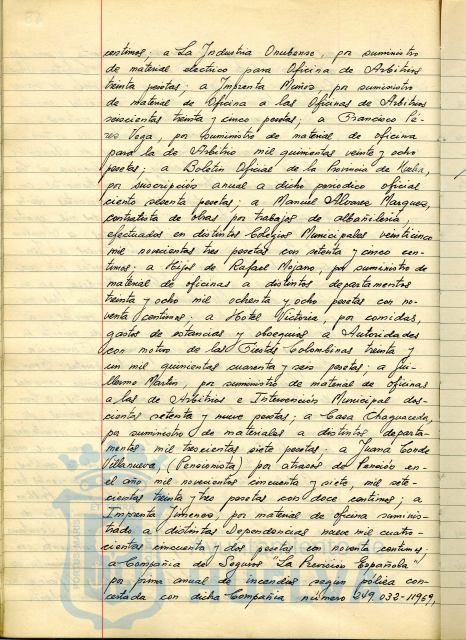 centimos; a La Industria Onubense, por suministro
de material electrico para Oficina de Arbitrios
treinta pesetas; a Imprenta Muñoz, por suministro
de material de Oficina a las Oficinas de Arbitrios
seiscientas treinta y cinco pesetas; a Francisco Pé-
rez Vega, por suministro de material de oficina
para la de Arbitrios mil quinientas veinte y ocho
pesetas; a Boletin Oficial de la Provincia de Huelva,
por suscripción anual a dicho periodico oficial
ciento sesenta pesetas; a Manuel Alvarez Marquez,
contratista de obras por trabajos de albañileria,
efectuados en distintos Colegios Municipales veinticinco
mil novecientas tres pesetas con setenta y cinco cen-
timos; a Hijos de Rafael Mojano, por suministro de
material de oficinas a distintos departamentos
treinta y ocho mil ochenta y ocho pesetas con no-
venta centimos; a Hotel Victoria, por comidas,
gastos de estancias y obsequios a Autoridades
con motivo de las Fiestas Colombinas treinta y
un mil quinientas cuarenta y seis pesetas; a Gui-
llermo Martin, por suministro de material de oficinas
a las de Arbitrios e Intervención Municipal dos-
cientas setenta y nueve pesetas; a Casa Chaguaceda,
por suministro de materiales a distintos departa-
mentos mil trescientas siete pesetas; a Juana Conde
Villanueva, (Pensionista) por atrasos de Pensión en
el año mil novecientos cincuenta y siete, mil sete-
cientas treinta y tres pesetas con doce centimos; a
Imprenta Jimenez, por material de oficina suminis-
trado a distintas Dependencias nueve mil cuatro-
cientas cincuenta y dos pesetas con noventa centimos;
a Compañia de Seguros "La Prevision Española"
por prima anual de incendios según póliza con-
certada con dicha Compañia número 249.032-11969,